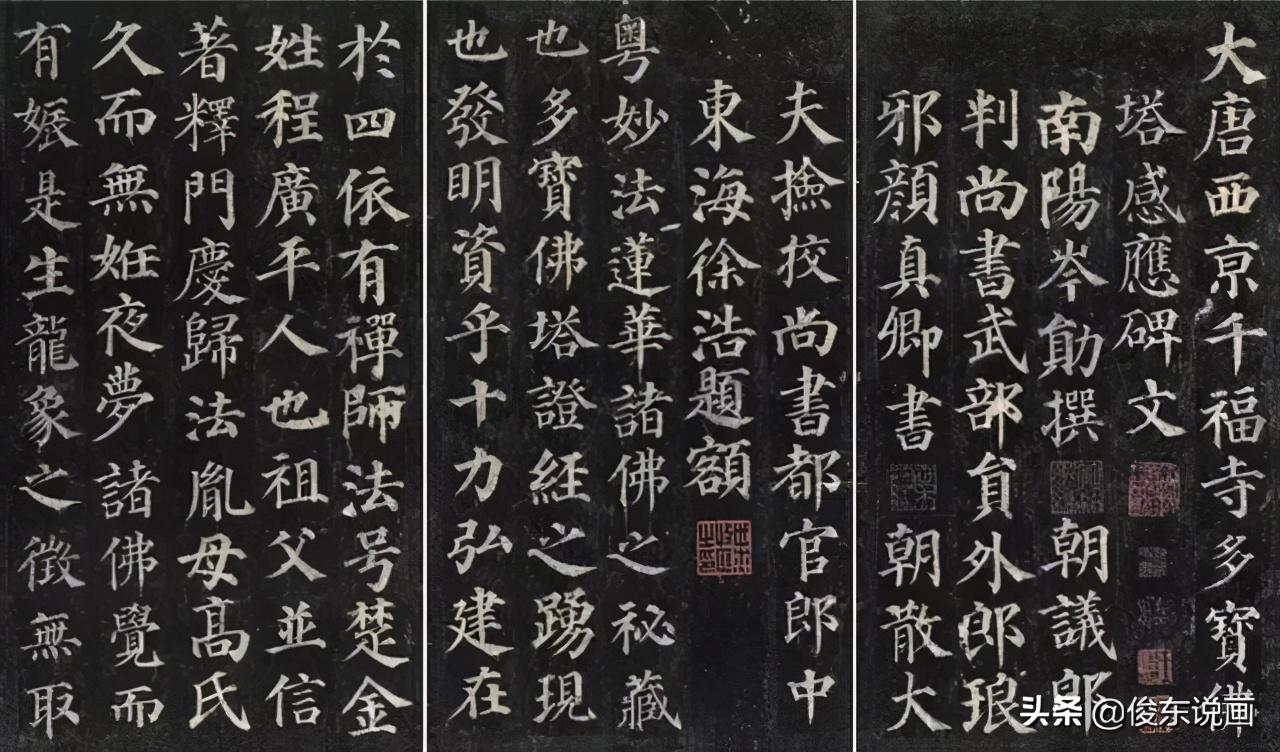 大唐西京千福寺多寶佛
塔感應碑文
南陽岑勛撰 朝議郎
判尚書武部員外郎琅
邪顏真卿書 朝散大
夫撿挍尚書都官郎中
東海徐浩題額
粵妙法蓮華諸佛之秘藏
也多寶佛塔證經之踴現
也發明資乎十力弘建在
於四依有禪師法号楚金
姓程廣平人也祖父並信
著釋門慶歸法胤母高氏
久而無姙夜夢諸佛覺而
有娠是生龍象之徵無取
头条 @俊东说画